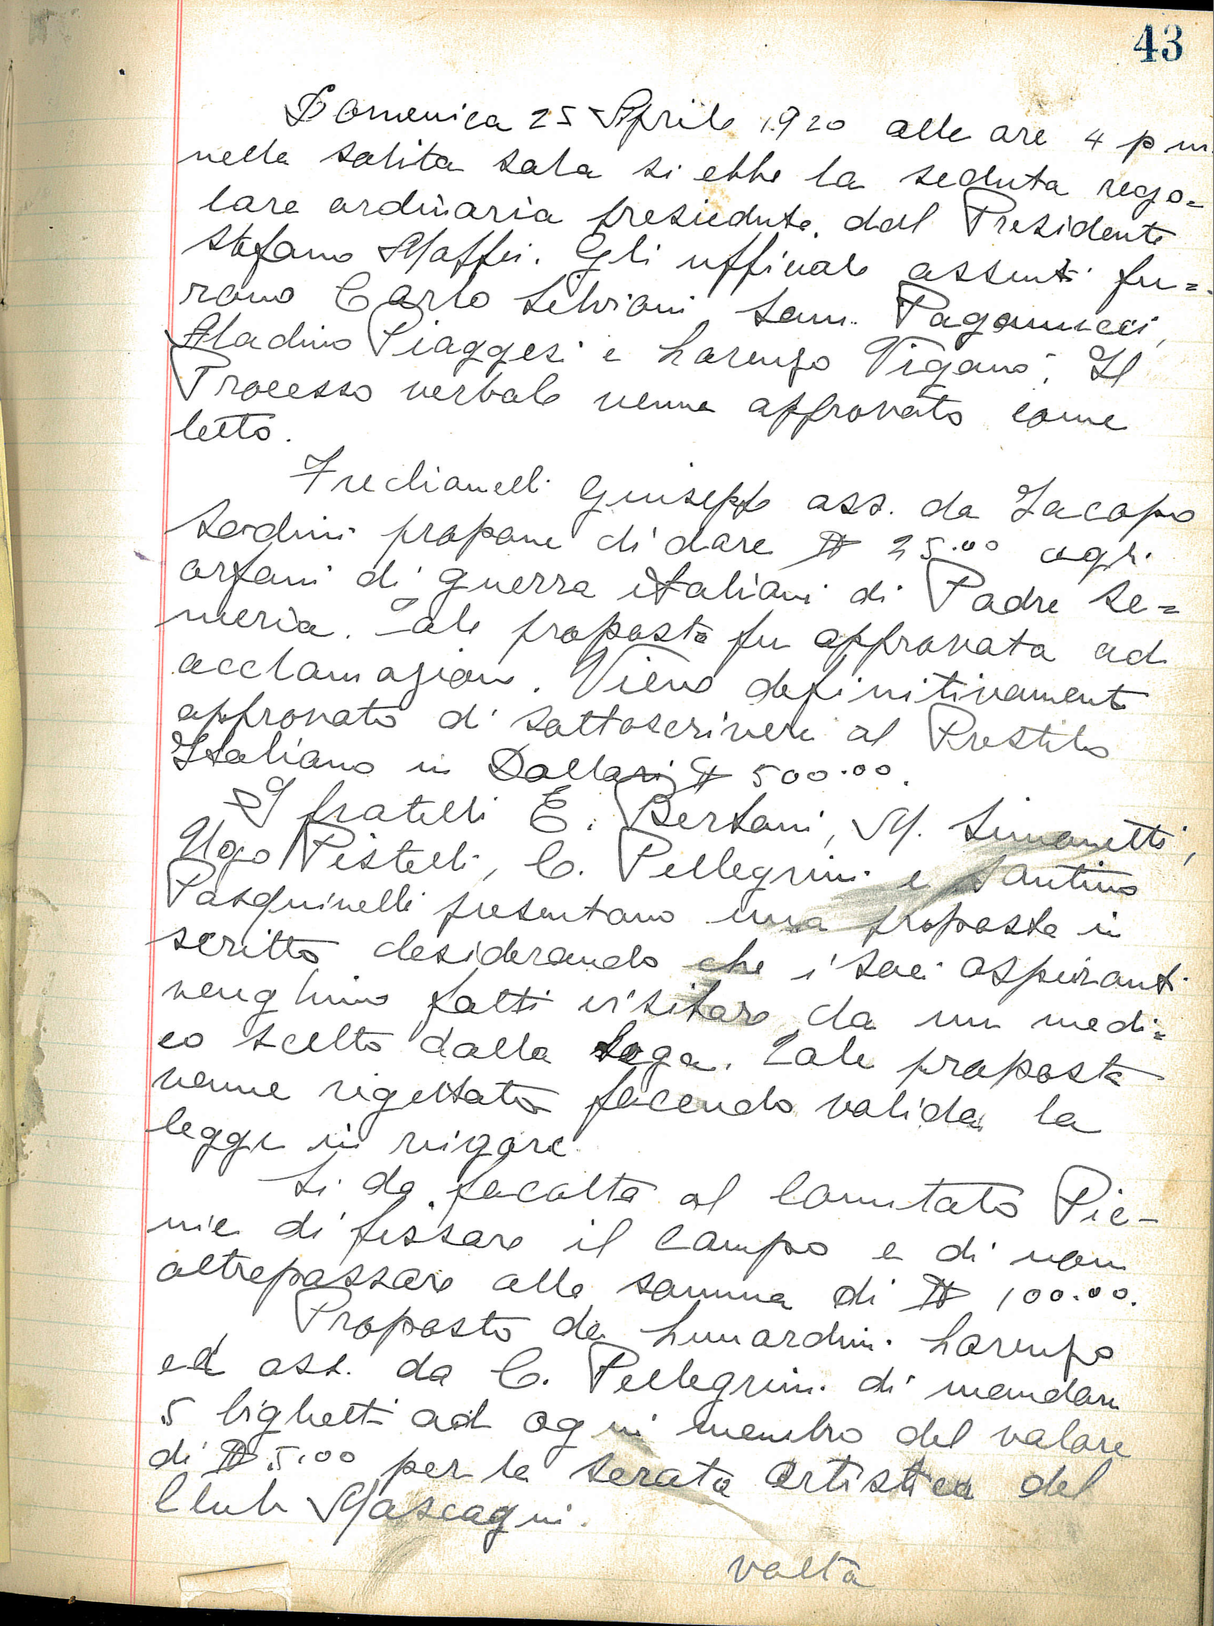 43
Domenica 25 Aprile 1920 alle ore 4 p m.
nella solita sala si ebbe la seduta rego=
lare ordinaria presieduta dal Presidente
Stefano Maffei. Gli ufficiale assenti fu=
rono Carlo Silviani, Sam. Pagannucci,
Aladino Piaggesi e Lorenzo Vigano; Il
Processo verbale venne approvato come
letto.
Fredianelli Giuseppe ass. da Jacopo
Sodini propone di dare $ 25.00 agli
orfani di guerra italiani di Padre Se=
meria. Tale proposta fu approvata ad
acclamazione. Viene definitivamente
approvato di sottoscrivere al Prestito
Italiano in Dollari $ 500.00.
I fratelli E. Bertani, M. Simonetti,
Ugo Pistelli, C. Pellegrini e Santino
Pasquinelli presentano una proposta in
scritto desiderando che i soci aspiranti
venghino fatti visitare da un medi=
co scelto dalla Loga. Tale proposta
venne rigettata facendo valida la
legge in vigore.
Si da facolta al Comitato Pic-
nic di fissare il campo e di non
oltrepassare alla somma di $ 100.00.
Proposto da Lunardini Lorenzo
ed ass. da C. Pellegrini di mandare
5 biglietti ad ogni membro del valore
di $ 5.00 per la serata artistica del
Club Mascagni.
volta